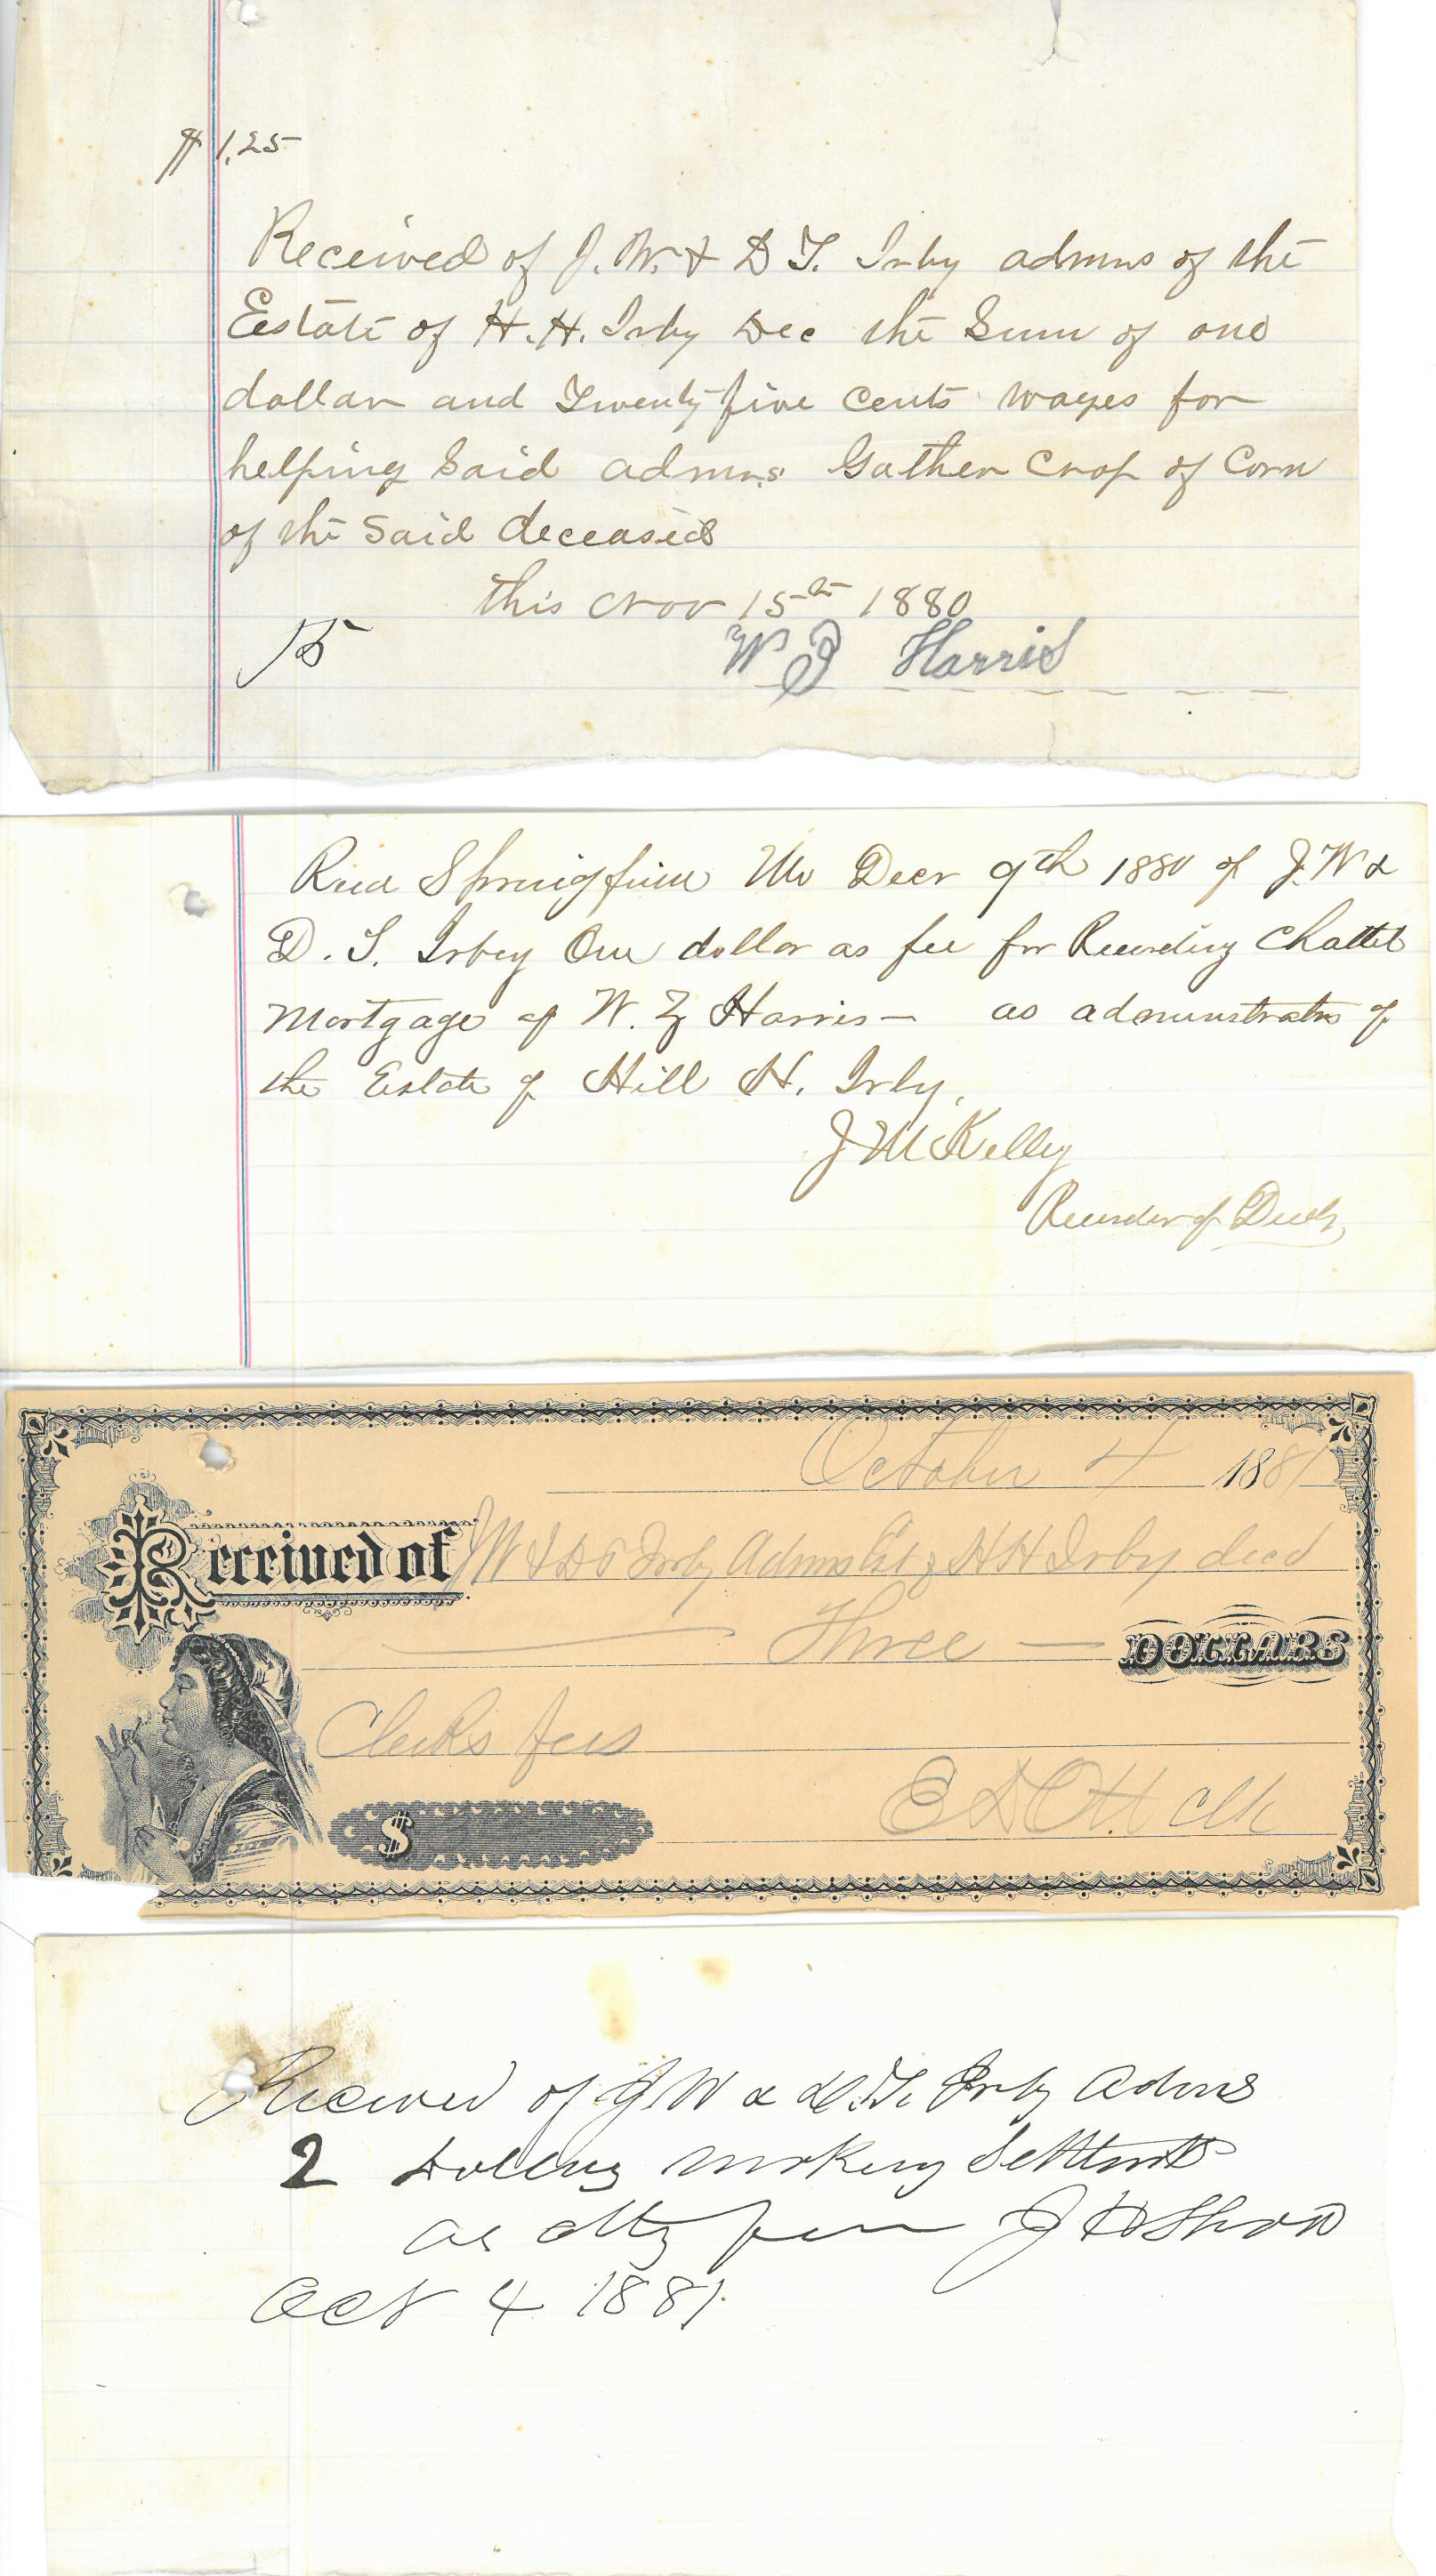 $1.25
Received of J. W. & D T. Irby admrs of the
Estate of H. H. Irby Dec the Sum of one
dollar and Twenty five cents wages for
helping Said admrs Gather Crop of Corn
of the Said deceased
this Nov 15th 1880
15
W J Harris
Recd Springfield Mo Decr 9th 1880 of J. W &
D. T. Irbey One dollar as fee for Recording Chattel
Mortgage of W. Z Harris — as administrators of
the Estate of Hill H. Irby.
J M Kelley
Recorder of Deeds
October 4 1881
Received of J W & D T Irby Admrs Est of H H Irby decd
Three DOLLARS
Clerks fees
$
E D Ott Clk
Received of J W & D. T. Irby Admrs
2 Dollars making Settlmts
as atty J D
Oct 4 1881